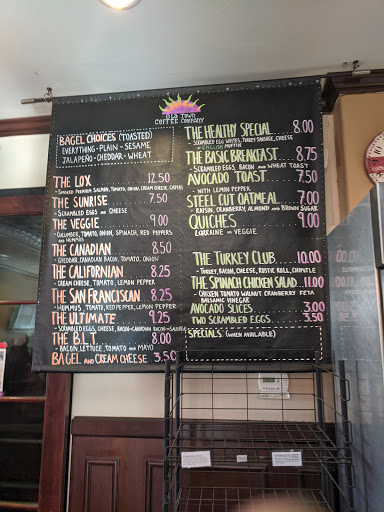 OLD TOWN
COFFEE COMPANY
BAGEL CHOICES (TOASTED)
EVERYTHING - PLAIN - SESAME
JALAPEÑO - CHEDDAR - WHEAT
THE LOX 12.50
- SMOKED PREMIUM SALMON, TOMATO, ONION, CREAM CHEESE, CAPERS
THE SUNRISE 7.50
- SCRAMBLED EGGS AND CHEESE
THE VEGGIE 9.00
- CUCUMBER, TOMATO, ONION, SPINACH, RED PEPPERS
AND HUMMUS
THE CANADIAN 8.50
- CHEDDAR, CANADIAN BACON, TOMATO, ONION
THE CALIFORNIAN 8.25
- CREAM CHEESE, TOMATO, LEMON PEPPER
THE SAN FRANCISCAN 8.25
- HUMMUS, TOMATO, RED PEPPER, LEMON PEPPER
THE ULTIMATE 9.25
- SCRAMBLED EGGS, CHEESE, BACON - CANADIAN BACON - SAUSAGE
THE B.L.T. 8.00
- BACON, LETTUCE, TOMATO AND MAYO
BAGEL AND CREAM CHEESE 3.50
THE HEALTHY SPECIAL 8.00
- SCRAMBLED EGG WHITES, TURKEY SAUSAGE, CHEESE
ENGLISH MUFFIN
THE BASIC BREAKFAST 8.75
- SCRAMBLED EGGS, BACON AND WHEAT TOAST
AVOCADO TOAST 7.50
- WITH LEMON PEPPER
STEEL CUT OATMEAL 7.00
- RAISIN, CRANBERRY, ALMOND AND BROWN SUGAR
QUICHES 9.00
LORRAINE OR VEGGIE
THE TURKEY CLUB 10.00
- TURKEY, BACON, CHEESE, RUSTIC ROLL, CHIPOTLE
THE SPINACH CHICKEN SALAD 11.00
- CHICKEN TOMATO WALNUT CRANBERRY FETA
BALSAMIC VINEGAR
AVOCADO SLICES 3.00
TWO SCRAMBLED EGGS 5.50
SPECIALS: (WHEN AVAILABLE)